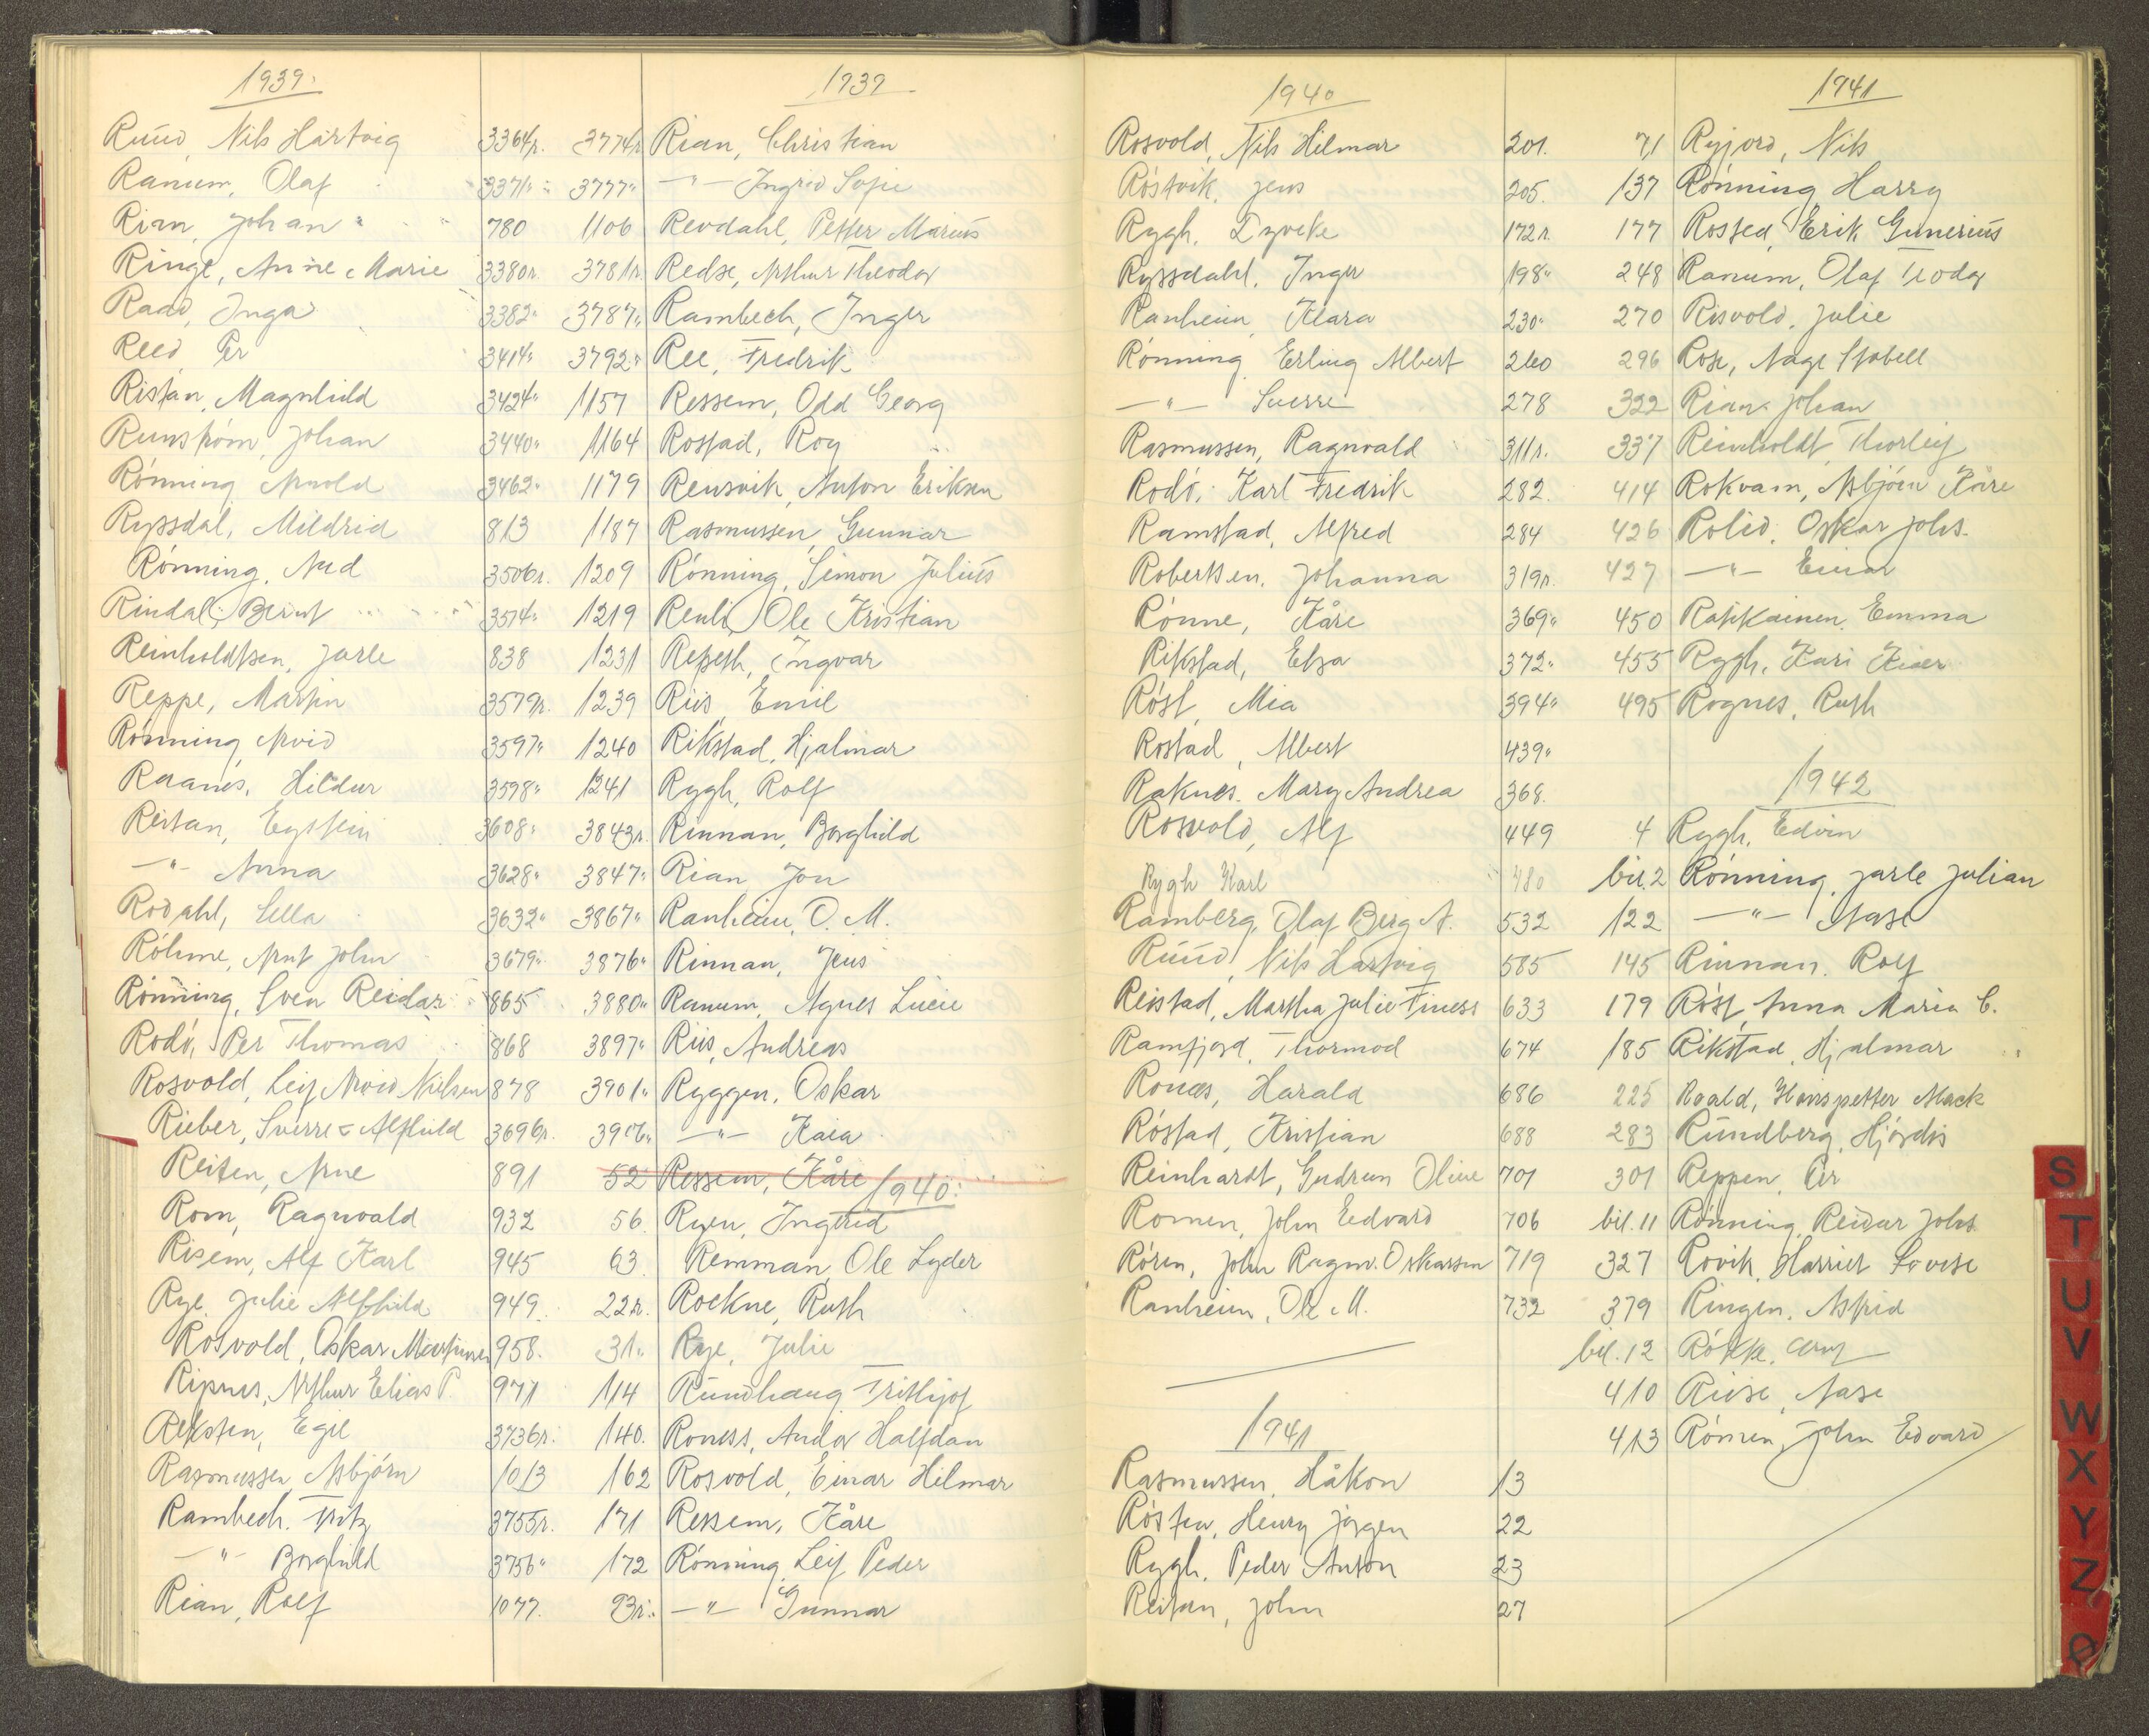 1939.
Ruud, Nils Hartvig 3364r.
Ranum, Olaf 3371"
Rian, Johan 780
Ringe, Anne Marie 3380r.
Raad, Inga 3382"
Reed, Per 3414"
Ristan, Magnhild 3424"
Runstrøm, Johan 3440"
Rønning, Arnold 3462"
Ryssdal, Mildrid 813
Rønning, Aud 3506r.
Rindal, Bernt 3574"
Reinholdtsen, Jarle 838
Reppe, Martin 3579r.
Rønning, Arvid 3597"
Raanes, Hildur 3598"
Reitan, Eystein 3608"
—"— Anna 3628"
Rodahl, Lella 3632"
Røhme, Arnt John 3679"
Rønning, Sven Reidar 865
Rodø, Per Thomas 868
Rosvold, Leif Arvid Nielsen 878
Rieber, Sverre & Alfhild 3696r.
Reiten, Arne 891
Rom, Ragnvald 932
Risem, Alf Karl 945
Rye, Julie Alfhild 949.
Rosvold, Oskar Martinsen 958.
Ripnes, Arthur Elias P. 971
Reksten, Egil 3736r.
Rasmussen Asbjørn 1013
Rambech, Fritz 3755r.
—"— Borghild 3756"
Rian, Rolf 1077.
1939
3774r Rian, Christian
3777" —"— Ingrid Sofie
1106 Revdahl, Petter Marius
3781r. Redse, Arthur Theodor
3787" Rambech, Inger
3792" Ree, Fredrik
1157 Ressem, Odd Georg
1164 Rostad, Roy
1179 Rensvik, Anton Eriksen
1187 Rasmussen, Gunnar
1209 Rønning, Simon Julius
1219 Renli, Ole Kristian
1231 Repseth, Ingvar
1239 Riis, Emil
1240 Rikstad, Hjalmar
1241 Rygh, Rolf
3843r. Rinnan, Borghild
3847" Rian, Jon
3867" Ranheim, O. M.
3876" Rinnan, Jens
3880" Ranum, Agnes Lucie
3897" Riis, Andreas
3901" Ryggen, Oskar
3906" —"— Kaia
52 Ressem, Kåre
1940.
56. Ryen, Ingerid
63. Remman, Ole Lyder
22r. Rockne, Ruth
31" Rye, Julie
114 Rundhaug, Trithjof
140. Roness, Andor Halfdan
162 Rosvold, Einar Hilmar
171 Ressem, Kåre
172 Rønning, Leif Peder
93r. —"— Gunnar
1940
Rosvold, Nils Hilmar 201.
Røstvik, Jens 205.
Rygh, Dyveke 172r.
Ryssdahl, Inger 198"
Ranheim, Klara 230"
Rønning, Erling Albert 260
—"— Sverre 278
Rasmussen, Ragnvald 311r.
Rodø, Karl Fredrik 282.
Ramstad, Alfred 284
Robertsen, Johanna 319r.
Rønne, Kåre 369"
Rikstad, Elsa 372"
Røst, Mia 394"
Rostad, Albert 439"
Raknes, Mary Andrea 368.
Rosvold, Alf 449
Rygh Karl 480
Ramberg, Olaf Berg A. 532
Ruud, Nils Hartvig 585
Reistad, Martha Julie Finess 633
Ramfjord, Thormod 674
Ronæs, Harald 686
Røstad, Kristian 688
Reinhardt, Gudrun Oline 701
Romen, John Edvard 706
Røren, John Ragnv. Oskarsen 719
Ranheim, Ole M. 732
1941
Rasmussen, Håkon 13
Røsten, Henry Jørgen 22
Rygh, Peder Anton 23
Reitan, John 27
1941
71 Ryjord, Nils
137 Rønning Harry
177 Rossed, Erik Gunerius
248 Ranum, Olaf Teodor
270 Risvold, Julie
296 Rose, Aage Stabell
322 Rian, Johan
337 Reinholdt, Thorleif
414 Rokvam, Asbjørn Kåre
426 Rolid, Oskar Johs.
427 —"— Einar
450 Rapkainen, Emma
455 Rygh, Kari Kiær
495 Rognes, Ruth
1942
4 Rygh, Edvin
bil.2 Rønning, Jarle Julian
122 —"— Aase
145 Rinnan, Rolf
179 Røst, Anna Maria C.
185 Rikstad, Hjalmar
225 Roald, Hanspetter Mack
283 Rundberg, Hjørdis
301 Reppen, Per
bil.11 Rønning, Reidar Johs.
327 Rovik, Harriet Lovise
379 Ringen, Astrid
bil.12 Røkke, Arny
410 Riise, Aase
413 Rømen, John Edvard
S
T
U
V
W
X
Y
Z
Ø